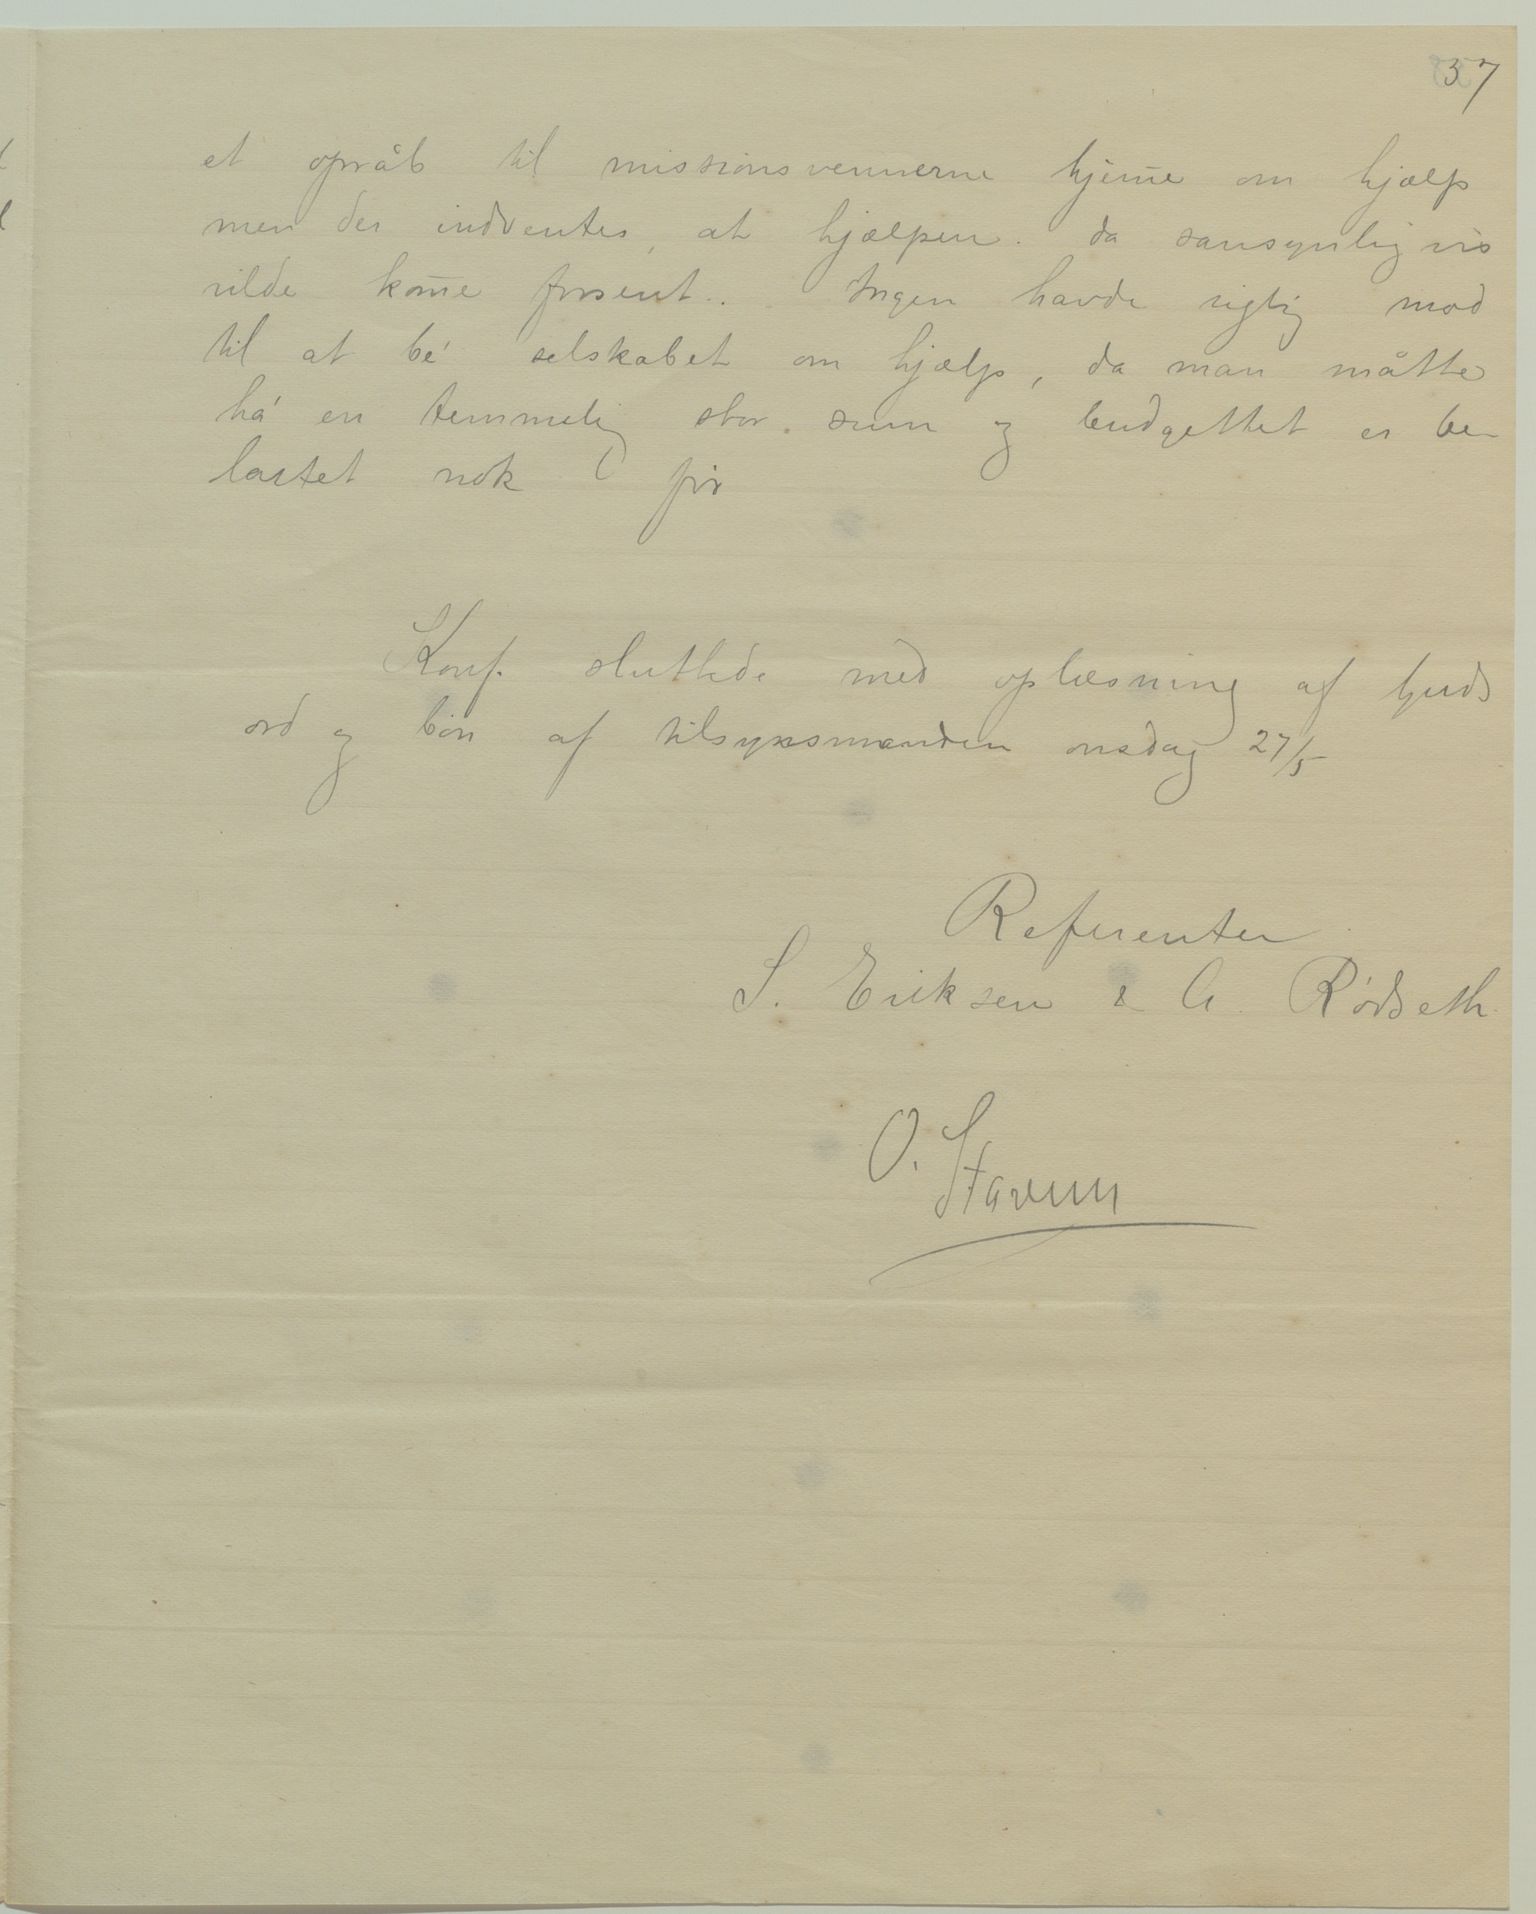 37
et opråb til missionsvennerne hjem̄e om hjælp
men der indventes, at hjælpen da sansynligvis
vilde kom̄e forsent. Ingen havde rigtig mod
til at bé selskabet om hjælp, da man måtte
há en temmelig stor sum og budgettet er be
lastet nok før
Konf. sluttede med oplæsning af Guds
ord og bøn af tilsynsmanden onsdag 27/5
Referenter
S. Eriksen & A. Rødseth
O. Stavem